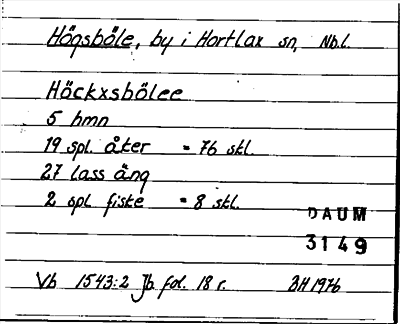 Högsböle, by i Hortlax sn, Nb.l.
Höckxsbölee
5 hmn
19 spl. åker = 76 skl.
27 lass äng
2 spl fiske = 8 skl.
DAUM
3149
Vb 1543:2 Jb fol. 18 r. BH 1976